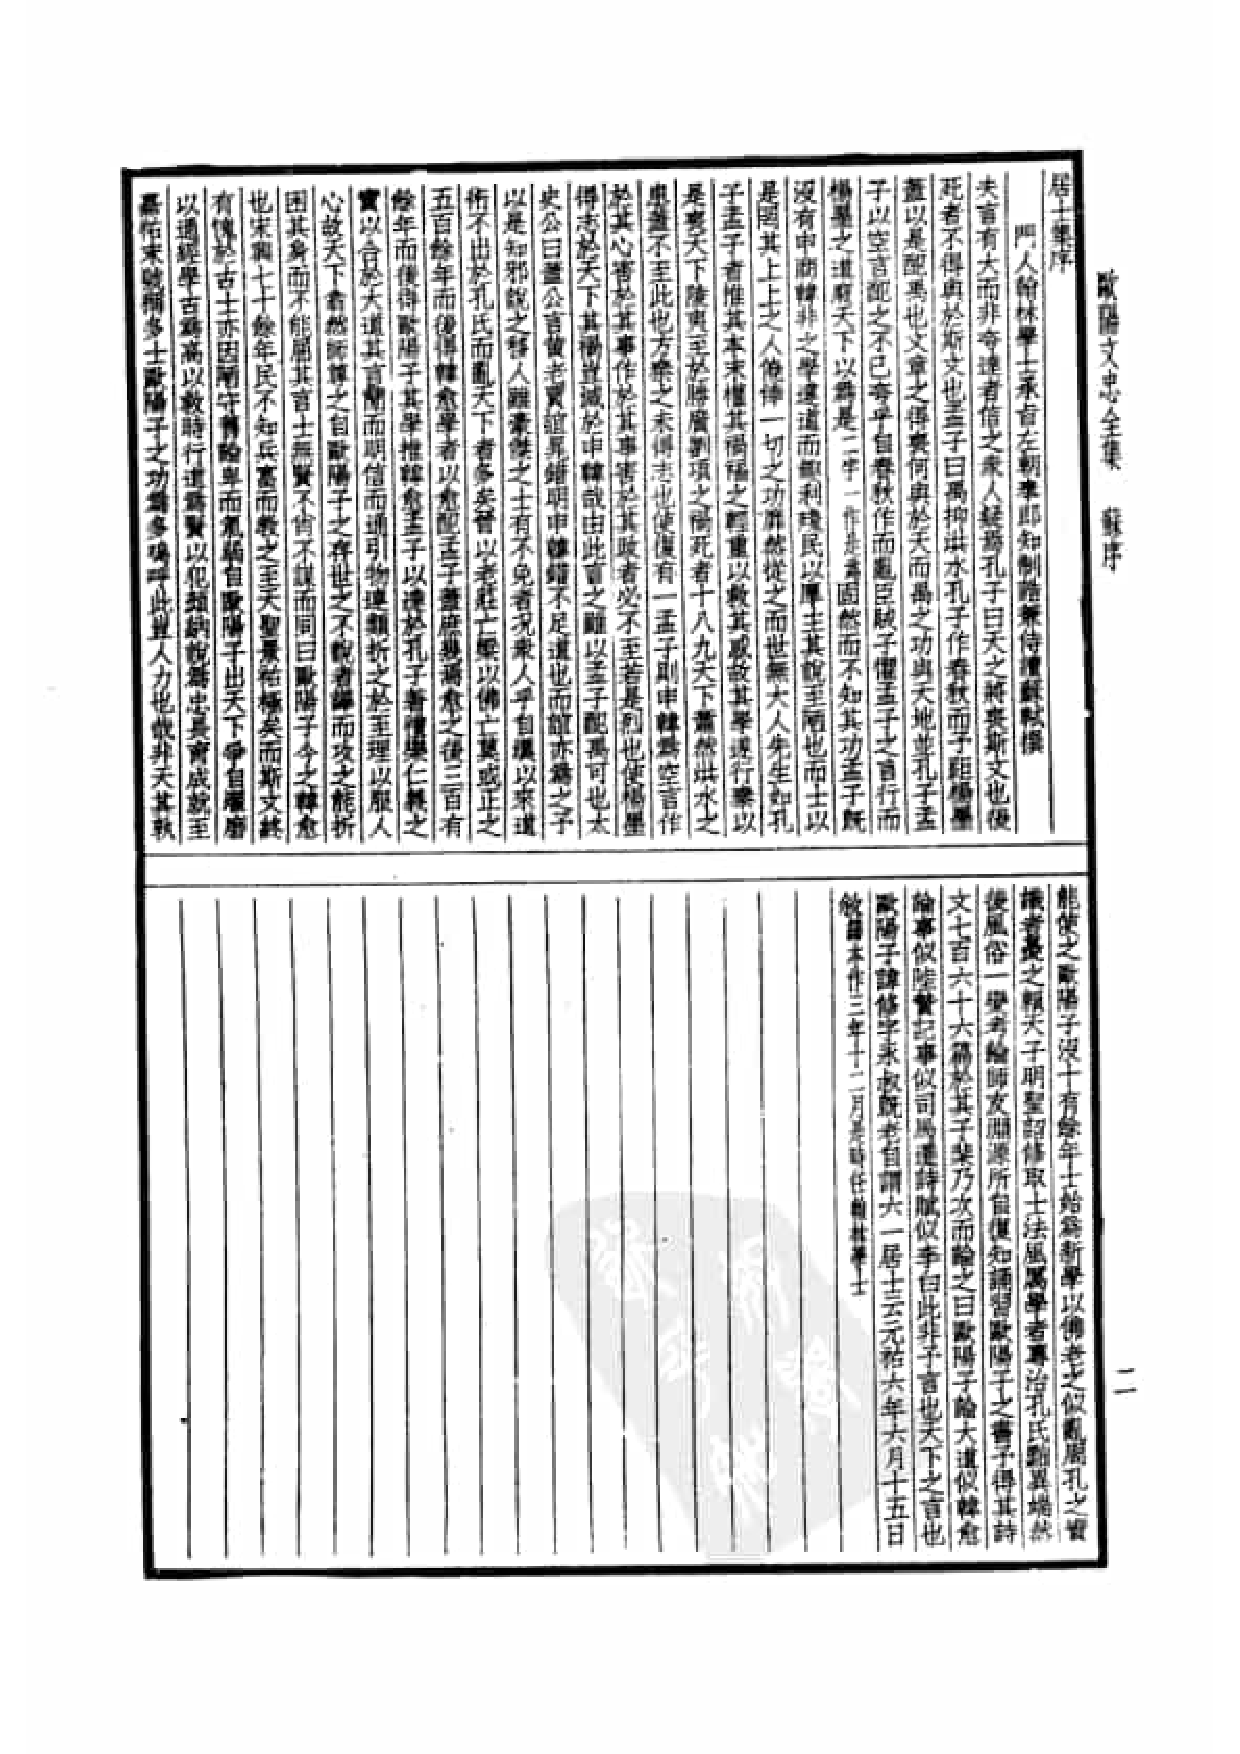 歐陽文忠全集　蘇序
居士集序
門人翰林學士承旨左朝奉郎知制誥兼侍讀蘇軾撰
夫言有大而非夸達者信之衆人疑焉孔子曰天之將喪斯文也後
死者不得與於斯文也孟子曰禹抑洪水孔子作春秋而予距楊墨
蓋以是配禹也文章之得喪何與於天而禹之功與天地並孔子孟
子以空言配之不已夸乎自春秋作而亂臣賊子懼孟子之言行而
楊墨之道廢天下以爲是二字一作是爲固然而不知其功孟子既
沒有申商韓非之學違道而趨利殘民以厚主其說至陋也而士以
是罔其上上之人僥倖一切之功靡然從之而世無大人先生如孔
子孟子者推其本末權其禍福之輕重以救其惑故其學遂行秦以
是喪天下陵夷至於勝廣劉項之禍死者十八九天下蕭然洪水之
患蓋不至此也方秦之未得志也使復有一孟子則申韓爲空言作
於其心害於其事作於其事害於其政者必不至若是烈也使楊墨
得志於天下其禍豈減於申韓哉由此言之雖以孟子配禹可也太
史公曰蓋公言黃老賈誼晁錯明申韓錯不足道也而誼亦爲之予
以是知邪說之移人雖豪傑之士有不免者況衆人乎自漢以來道
術不出於孔氏而亂天下者多矣晉以老莊亡梁以佛亡莫或正之
五百餘年而後得韓愈學者以愈配孟子蓋庶幾焉愈之後三百有
餘年而後得歐陽子其學推韓愈孟子以達於孔子著禮樂仁義之
實以合於大道其言簡而明信而通引物連類折之於至理以服人
心故天下翕然師尊之自歐陽子之存世之不說者譁而攻之能折
困其身而不能屈其言士無賢不肖不謀而同曰歐陽子今之韓愈
也宋興七十餘年民不知兵富而教之至天聖景祐極矣而斯文終
有愧於古士亦因陋守舊論卑而氣弱自歐陽子出天下爭自濯磨
以通經學古爲高以救時行道爲賢以犯顏納說爲忠長育成就至
嘉祐末號稱多士歐陽子之功爲多嗚呼此豈人力也哉非天其孰
能使之歐陽子沒十有餘年士始爲新學以佛老之似亂周孔之實
識者憂之賴天子明聖詔修取士法風厲學者專治孔氏黜異端然
後風俗一變考論師友淵源所自復知誦習歐陽子之書予得其詩
文七百六十六篇於其子棐乃次而論之曰歐陽子論大道似韓愈
論事似陸贄記事似司馬遷詩賦似李白此非予言也天下之言也
歐陽子諱修字永叔既老自謂六一居士云元祐六年六月十五日
敘本作三年十二月是時任翰林學士
二